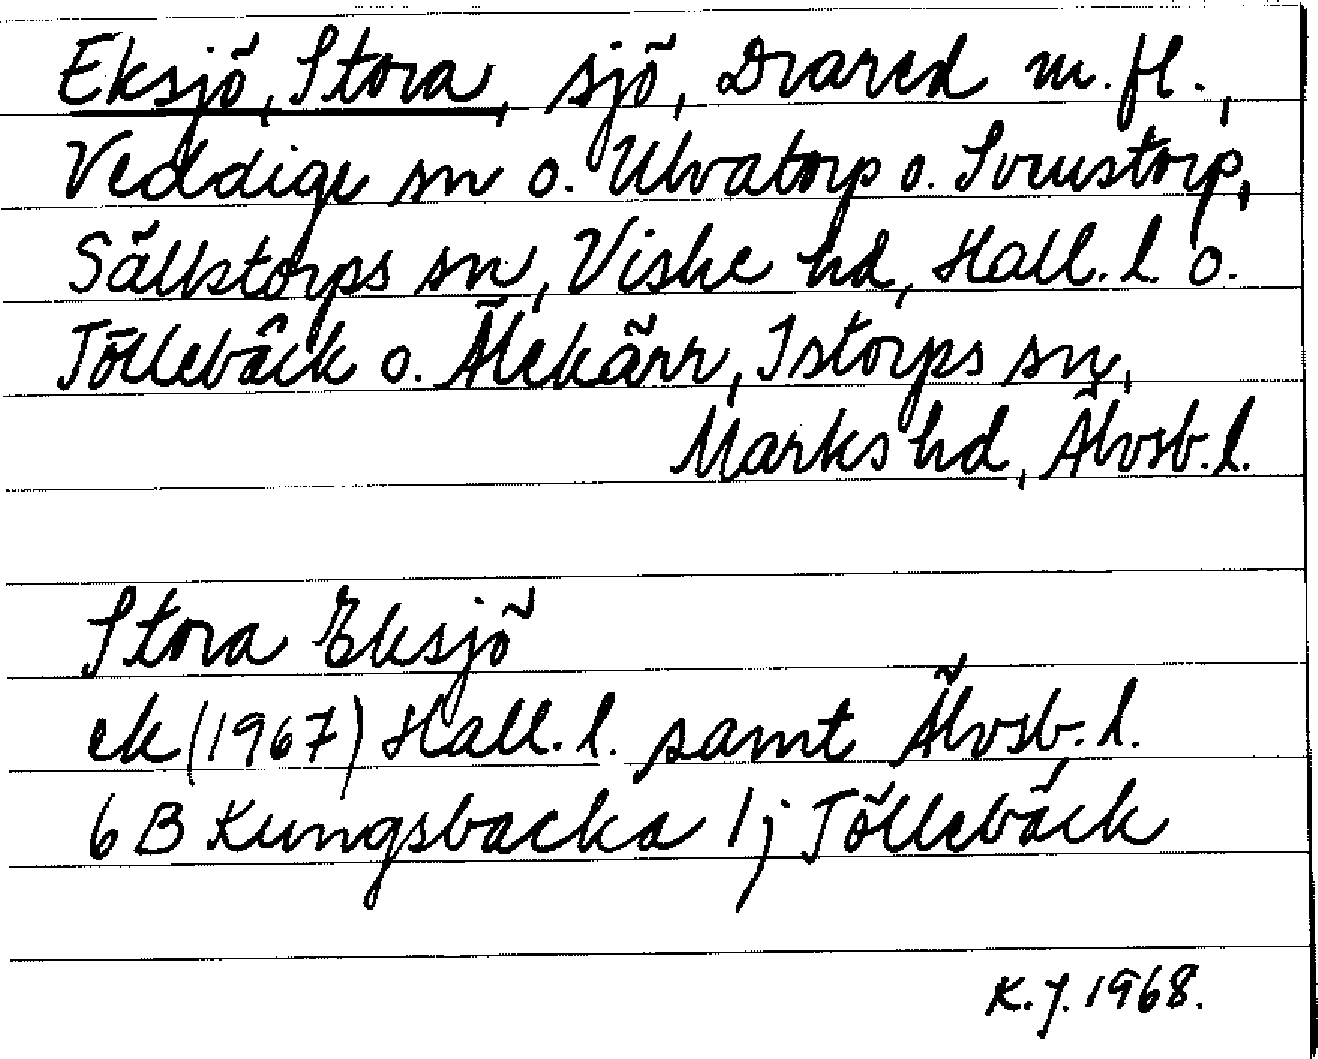 Eksjö, Stora, sjö, Drared m.fl.,
Veddige sn o. Ulvatorp o. Svenstorp,
Sällstorps sn, Viske hd, Hall. l. o.
Töllebäck o. Älekärr, Istorps sn,
Marks hd, Älvsb. l.
Stora Eksjö
ek (1967) Hall. l. samt Älvsb. l.
6 B Kungsbacka 1j Töllebäck
K.J. 1968.